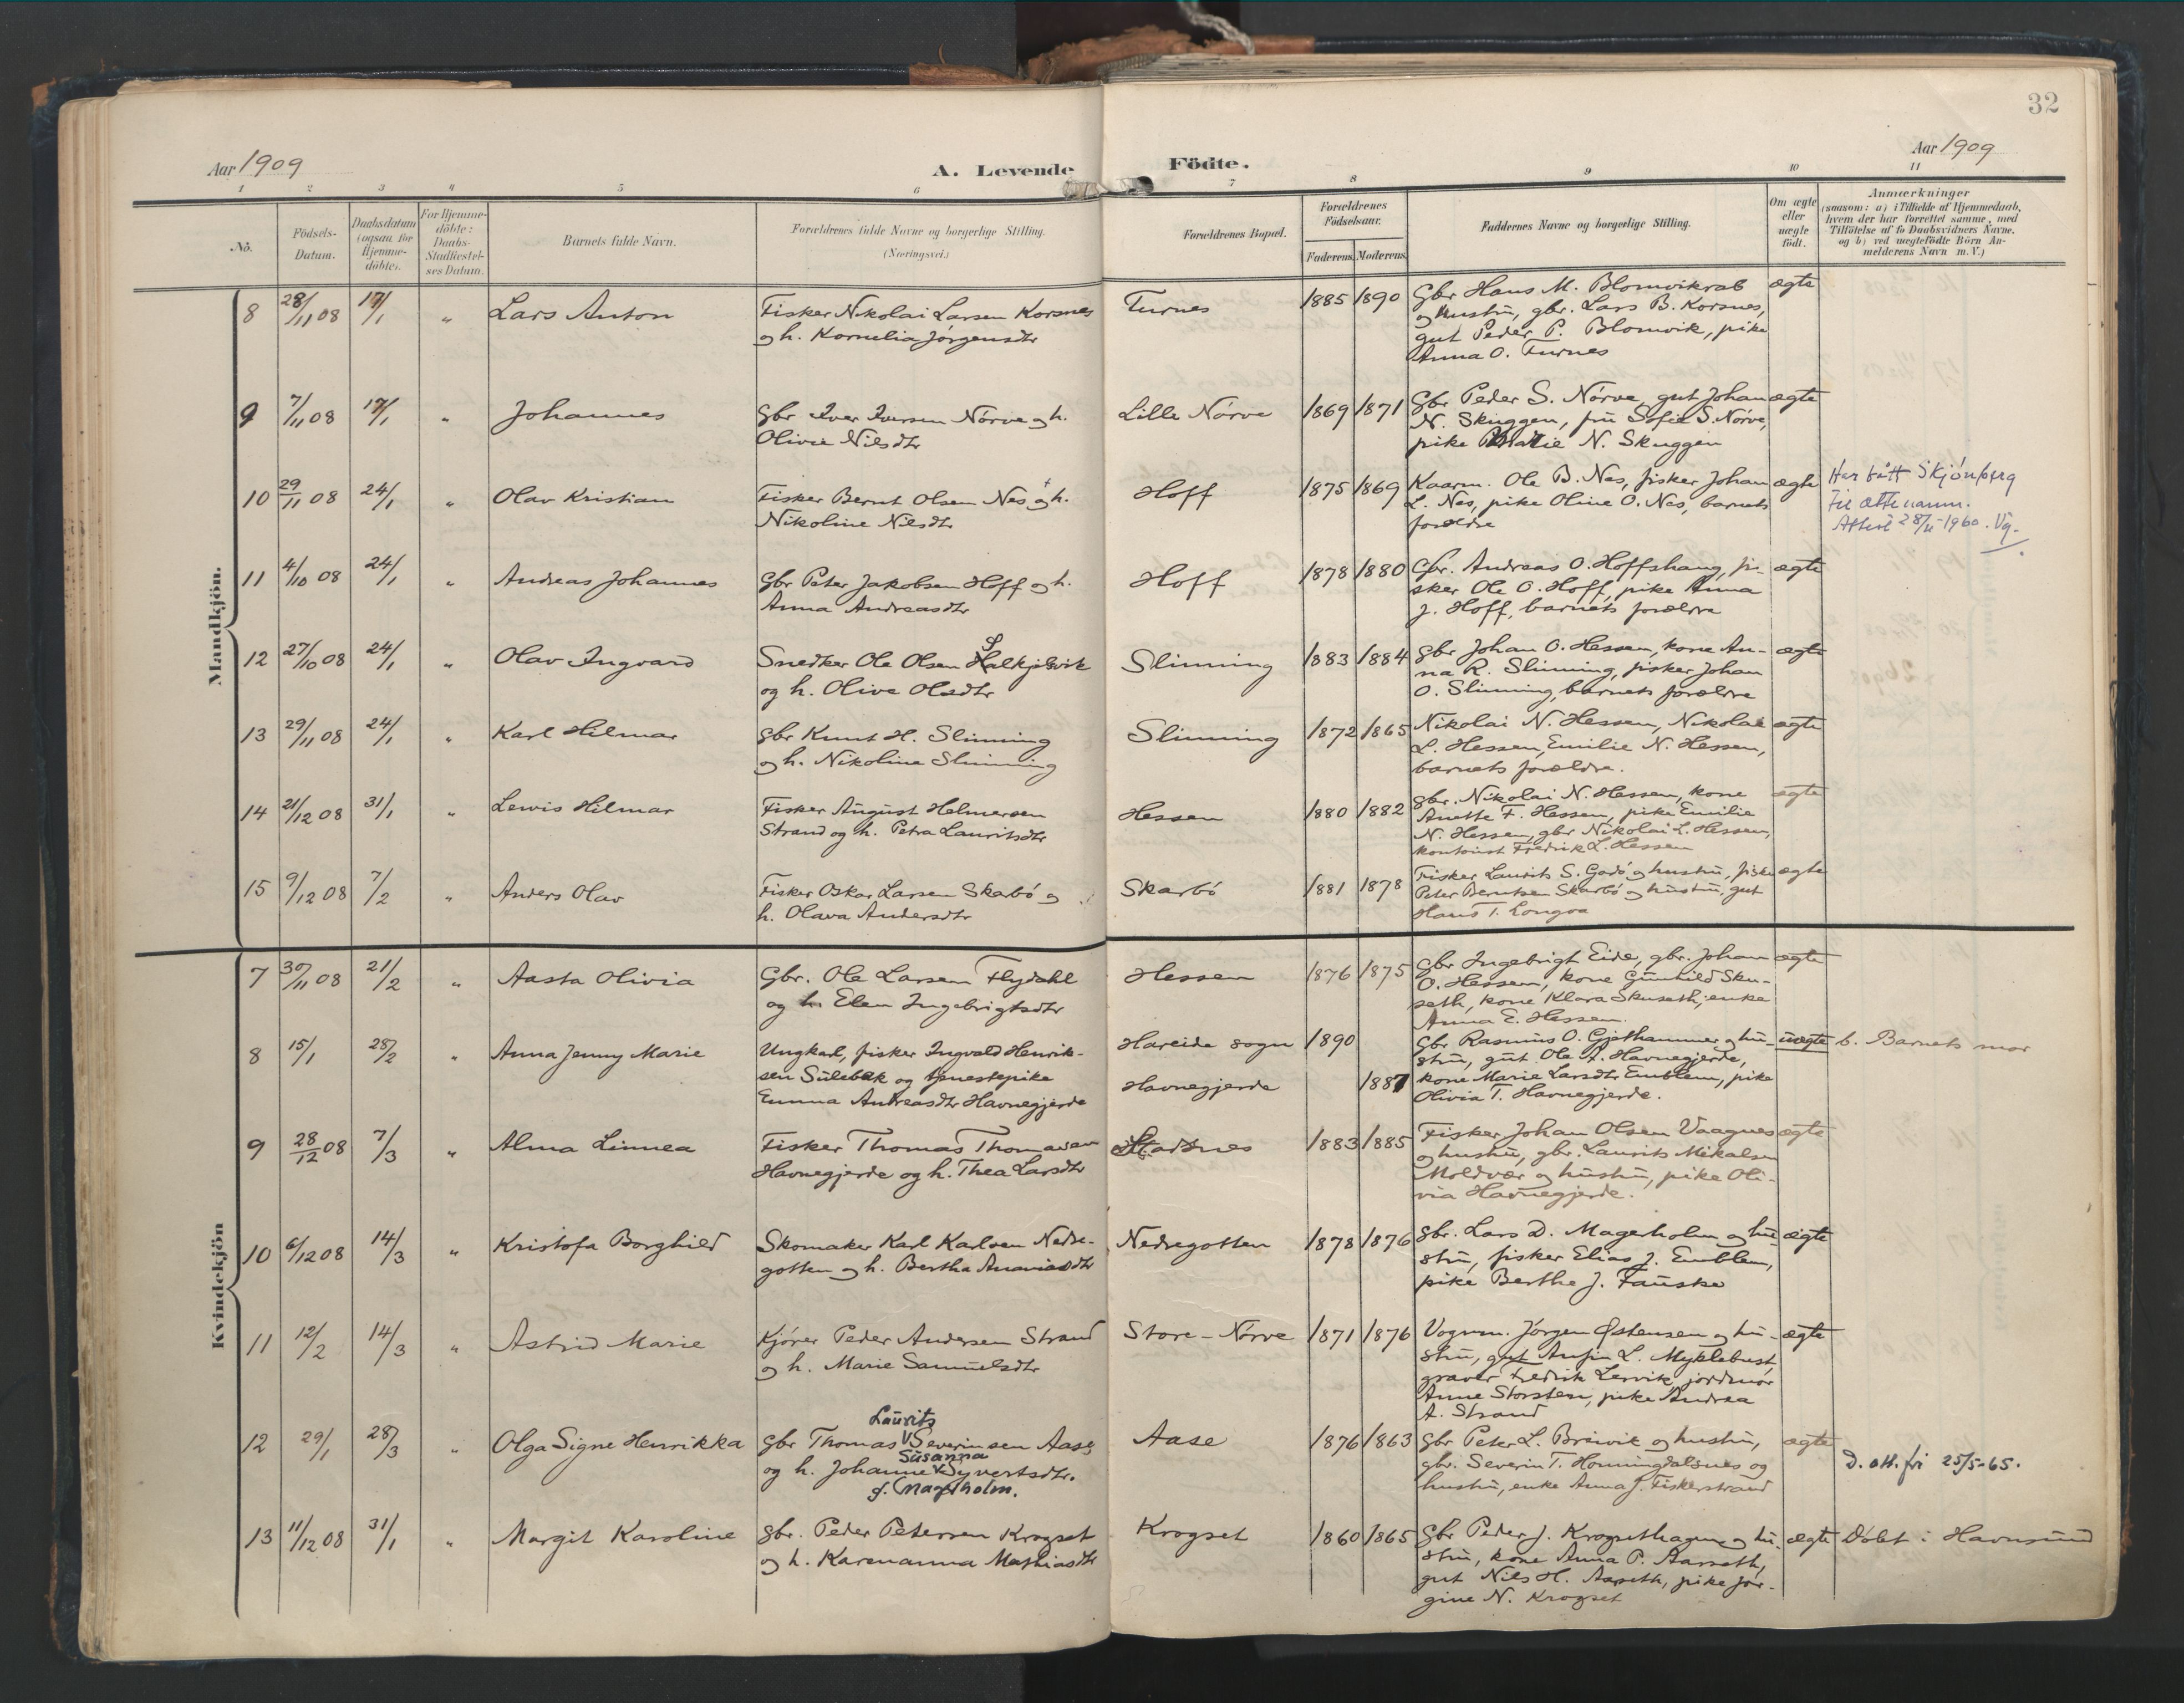 32
Aar 1909
A. Levende
Födte.
Aar 1909
1 2 3 4 5 6 7 8 9 10 11
No.
Födsels-
Datum.
Daabsdatum
(ogsaa for
Hjemme-
döbte).
For Hjemme-
döbte:
Daabs-
Stadfæstel-
ses Datum.
Barnets fulde Navn.
Forældrenes fulde Navne og borgerlige Stilling.
(Næringsvei.)
Forældrenes Bopæl.
Forældrenes
Födselsaar.
Faderens. Moderens.
Faddernes Navne og borgerlige Stilling.
Om ægte
eller
uægte
födt.
Anmærkninger
(saasom: a) i Tilfælde af Hjemmedaab,
hvem der har forrettet samme, med
Tilföielse af to Daabsvidners Navne,
og b) ved uægtefödte Börn An-
melderens Navn m. V.)
Mandkjön.
8 28/11 08 17/1 " Lars Anton
Fisker Nikolai Larsen Korsnes
og h. Kornelia Jørgensdtr
Furnes 1885 1890
Gbr Hans M. Blomvikrab
og hustru, gbr. Lars B. Korsnes,
gut Peder P. Blomvik, pike
Anna O. Furnes
ægte
9 7/11 08 17/1 " Johannes
Gbr Iver Iversen Nørve og h.
Olivie Nilsdtr
Lille Nørve 1869 1871
Gbr Peder S. Nørve, gut Johan
N. Skuggen, fru Sofie S. Nørve,
pike N. Skuggen
ægte
10 29/11 08 24/1 " Olav Kristian
Fisker Bernt Olsen Nes og h.
Nikoline Nilsdtr
Hoff 1875 1869
Kaarm. Ole B. Nes, fisker Johan
L. Nes, pike Oline O. Nes, barnets
forældre
ægte
Har fått Skjönberg
til ættenamn.
Attest 28/11-1960. Vg.
11 4/10 08 24/1 " Andreas Johannes
Gbr Peter Jakobsen Hoff og h.
Anna Andreasdtr
Hoff 1878 1880
Gbr. Andreas O. Hoffshaug, fi-
sker Ole O. Hoff, pike Anna
J. Hoff, barnets forældre
ægte
12 27/10 08 24/1 " Olav Ingvard
Snedker Ole Olsen Halkjelsvik
og h. Olive Olsdtr
Slinning 1883 1884
Gbr Johan O. Hessen, kone An-
na R. Slinning, fisker Johan
O. Slinning, barnets forældre
ægte
13 29/11 08 24/1 " Karl Hilmar
Gbr Knut H. Slinning
og h. Nikoline Slinning
Slinning 1872 1865
Nikolai N. Hessen, Nikolai
L. Hessen, Emilie N. Hessen,
barnets forældre.
ægte
14 21/12 08 31/1 " Lewis Hilmar
Fisker August Helmersen
Strand og h. Petra Lauritsdtr
Hessen 1880 1882
Gbr. Nikolai N. Hessen, kone
Anette F. Hessen, pike Emilie
N. Hessen, gbr Nikolai L. Hessen,
kontorist Fredrik L. Hessen
ægte
15 9/12 08 7/2 " Anders Olav
Fisker Oskar Larsen Skarbø og
h. Olava Andersdtr
Skarbö 1881 1878
Fisker Laurits S. Godö og hustru, fisker
Peter Berntsen Skarbö og hustru, gut
Hans T. Longva
ægte
Kvindekjön
7 30/11 08 21/2 " Aasta Olivia
Gbr. Ole Larsen Flydahl
og h. Elen Ingebrigtsdtr
Hessen 1876 1875
Gbr Ingebrigt Eide, gbr. Johan
O. Hessen, kone Gunhild Sku-
seth, kone Klara Skuseth, enke
Anna E. Hessen.
ægte
8 15/1 28/2 " Anna Jenny Marie
Ungkarl, fisker Ingvald Henrik-
sen Sulebak og tjenestepike
Emma Andreasdtr Havnegjerde
Hareide sogn 1890
Havnegjerde 1887
Gbr Rasmus O. Gjethammer og hu-
stru, gut Ole A. Havnegjerde,
kone Marie Larsdtr Emblem, pike
Olivia T. Havnegjerde.
uægte
b. Barnets mor
9 28/12 08 7/3 " Alma Linnea
Fisker Thomas Thomassen
Havnegjerde og h. Thea Larsdtr
Stadsnes 1883 1885
Fisker Johan Olsen Vaagnes
og hustru, gbr. Laurits Mikalsen
Moldvær og hustru, pike Oli-
via Havnegjerde.
ægte
10 6/12 08 14/3 " Kristofa Borghild
Skomaker Karl Karlsen Nedre-
gotten og h. Bertha Ananiasdtr
Nedregotten 1878 1876
Gbr. Lars D. Magerholm og hu-
stru, fisker Elias J. Emblem,
pike Berthe J. Fauske
ægte
11 12/2 14/3 " Astrid Marie
Kjører Peder Andersen Strand
og h. Marie Samuelsdtr
Store-Nørve 1871 1876
Vognm. Jørgen Østensen og hu-
stru, gut Anfin L. Myklebust,
graver Fredrik Lervik, jordmor
Anne Storsten, pike Andrea
A. Strand
ægte
12 29/1 28/3 " Olga Signe Henrikka
Laurits
Gbr Thomas V Severinsen Aase
Susanna
og h. Johanne V Syvertsdtr.
f. Magerholm.
Aase 1876 1863
Gbr Peter L. Breivik og hustru,
gbr. Severin T. Honningdalsnes og
hustru, enke Anna J. Fiskerstrand
ægte
D. att. fri 25/5-65.
13 11/12 08 31/1 " Margit Karoline
Gbr. Peder Petersen Krogset
og h. Karenanna Mathiasdtr
Krogset 1860 1865
Gbr Peder J. Krogsethagen og hu-
stru, kone Anna P. Aarseth,
gut Nils H. Aarseth, pike Jør-
gine N. Krogset
ægte
Døbt i Havnsund